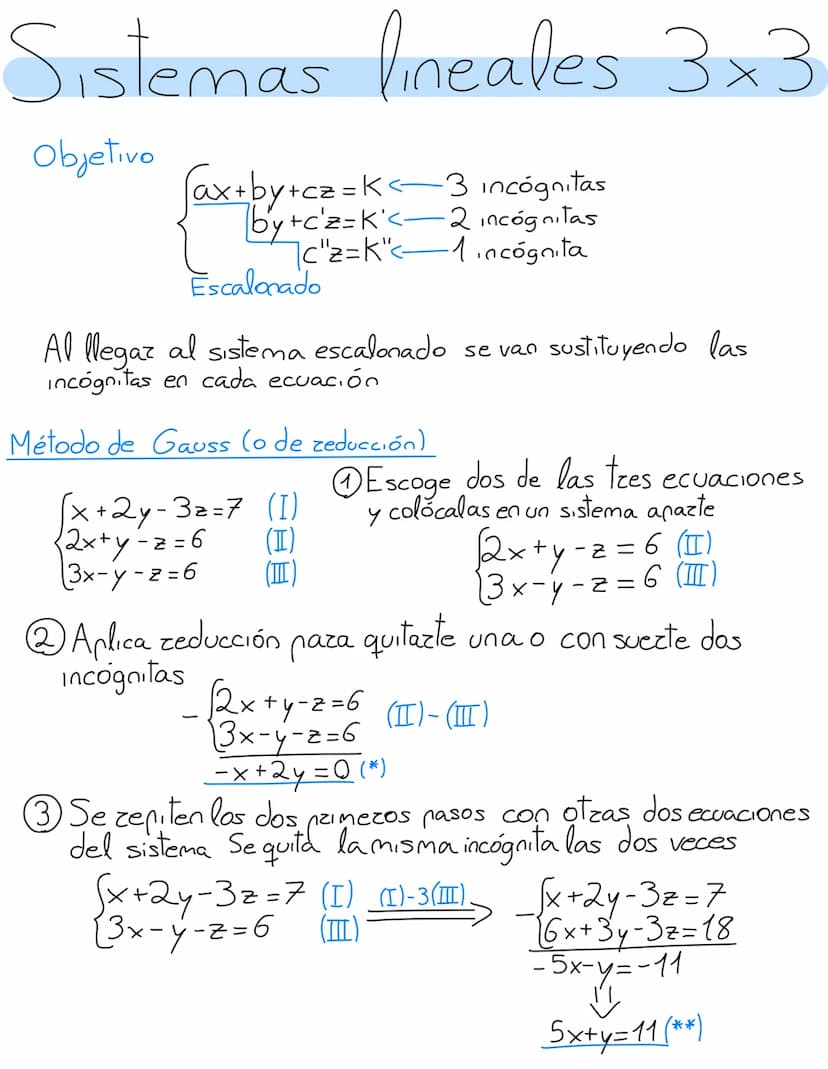 Sistemas lineales 3x3
Objetivo
ax+by+cz=K ← 3 incógnitas
b'y+c'z=K' ← 2 incógnitas
c"z=K" ← 1 incógnita
Escalonado
Al llegar al sistema escalonado se van sustituyendo las
incógnitas en cada ecuación
Método de Gauss (o de reducción)
x+2y-3z=7 (I)
2x+y-z=6 (II)
3x-y-z=6 (III)
① Escoge dos de las tres ecuaciones
y colócalas en un sistema aparte
2x+y-z=6 (II)
3x-y-z=6 (III)
② Aplica reducción para quitarte una o con suerte dos
incógnitas
- 2x+y-z=6
3x-y-z=6 (II)-(III)
-x+2y=0 (*)
③ Se repiten los dos primeros pasos con otras dos ecuaciones
del sistema Se quita la misma incógnita las dos veces
x+2y-3z=7 (I) (I)-3(III) ⇒
3x-y-z=6 (III)
- x+2y-3z=7
6x+3y-3z=18
-5x-y=-11
⇓
5x+y=11 (**)